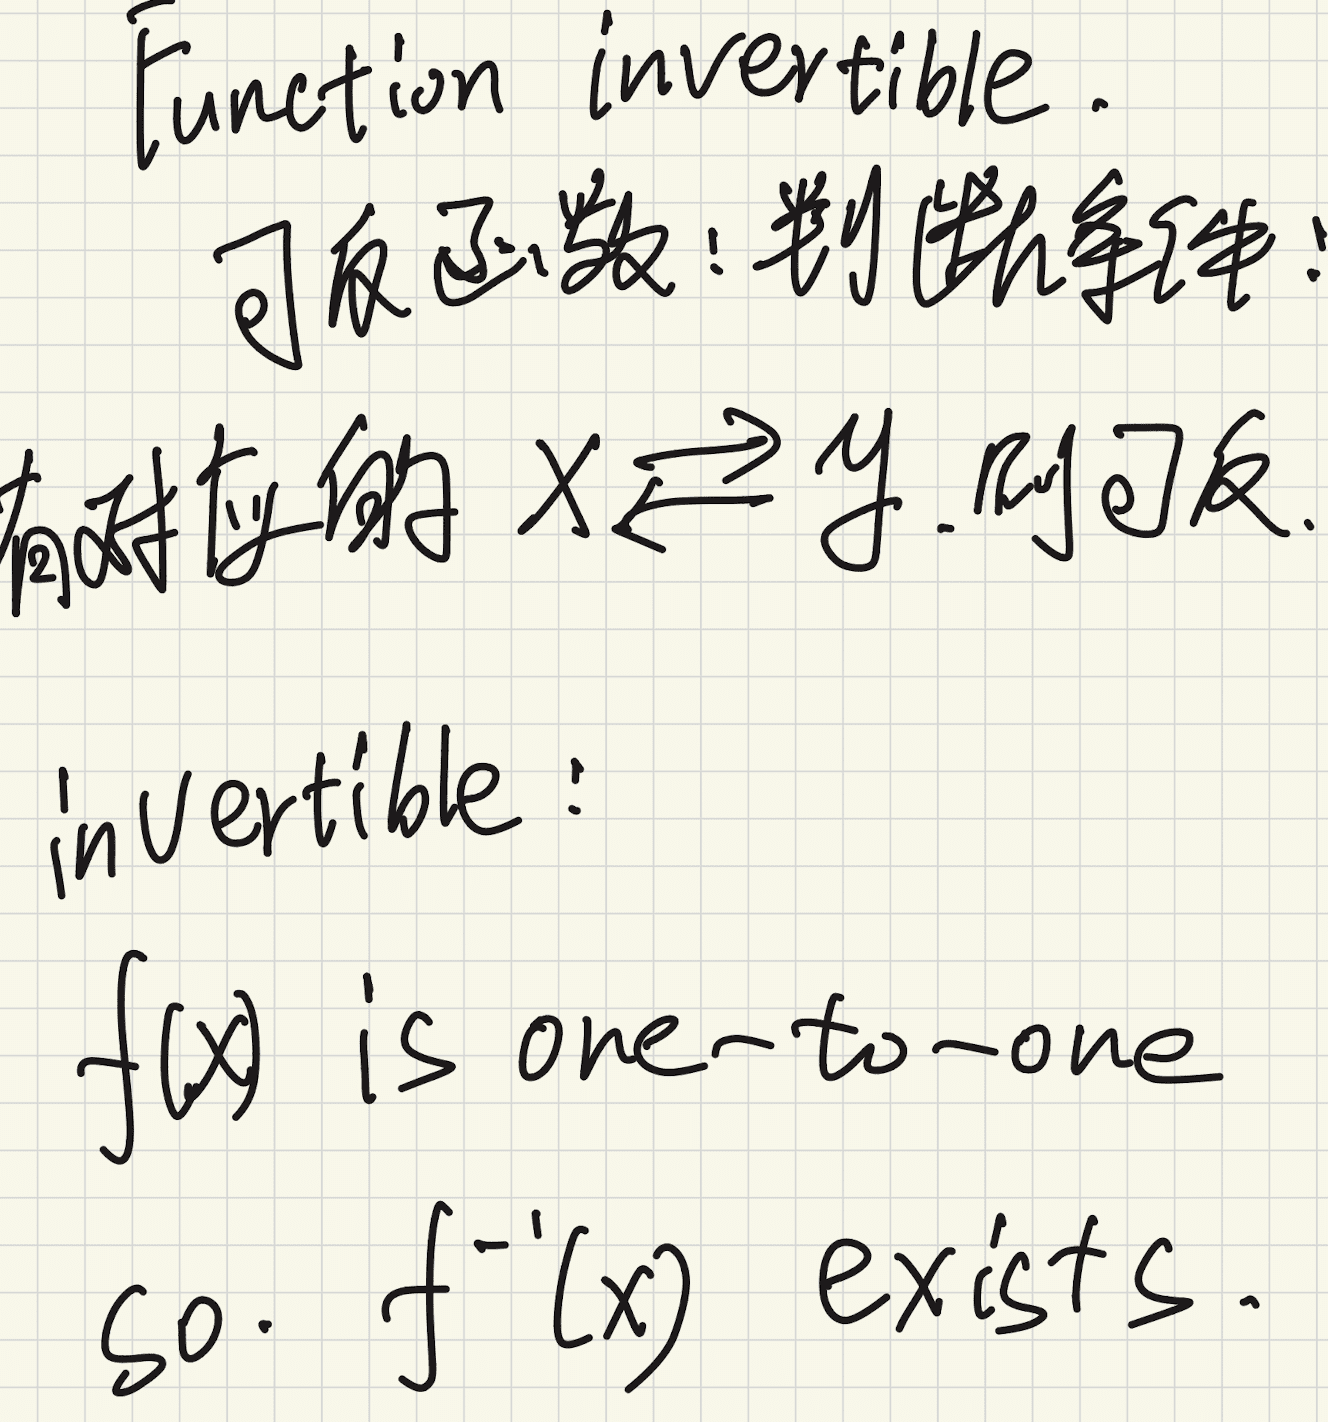 Function invertible.
可反函数：判断条件：
有对应的 X⇄y.则可反.
invertible:
f(x) is one-to-one
so. f⁻¹(x) exists.